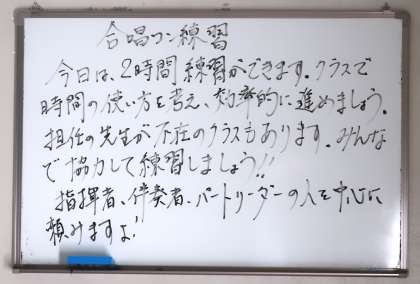 合唱コン練習
今日は、2時間練習ができます。クラスで
時間の使い方を考え、効率的に進めましょう。
担任の先生が不在のクラスもあります。みんな
で協力して練習しましょう!!
指揮者、伴奏者、パートリーダーの人を中心に
頼みますよ!